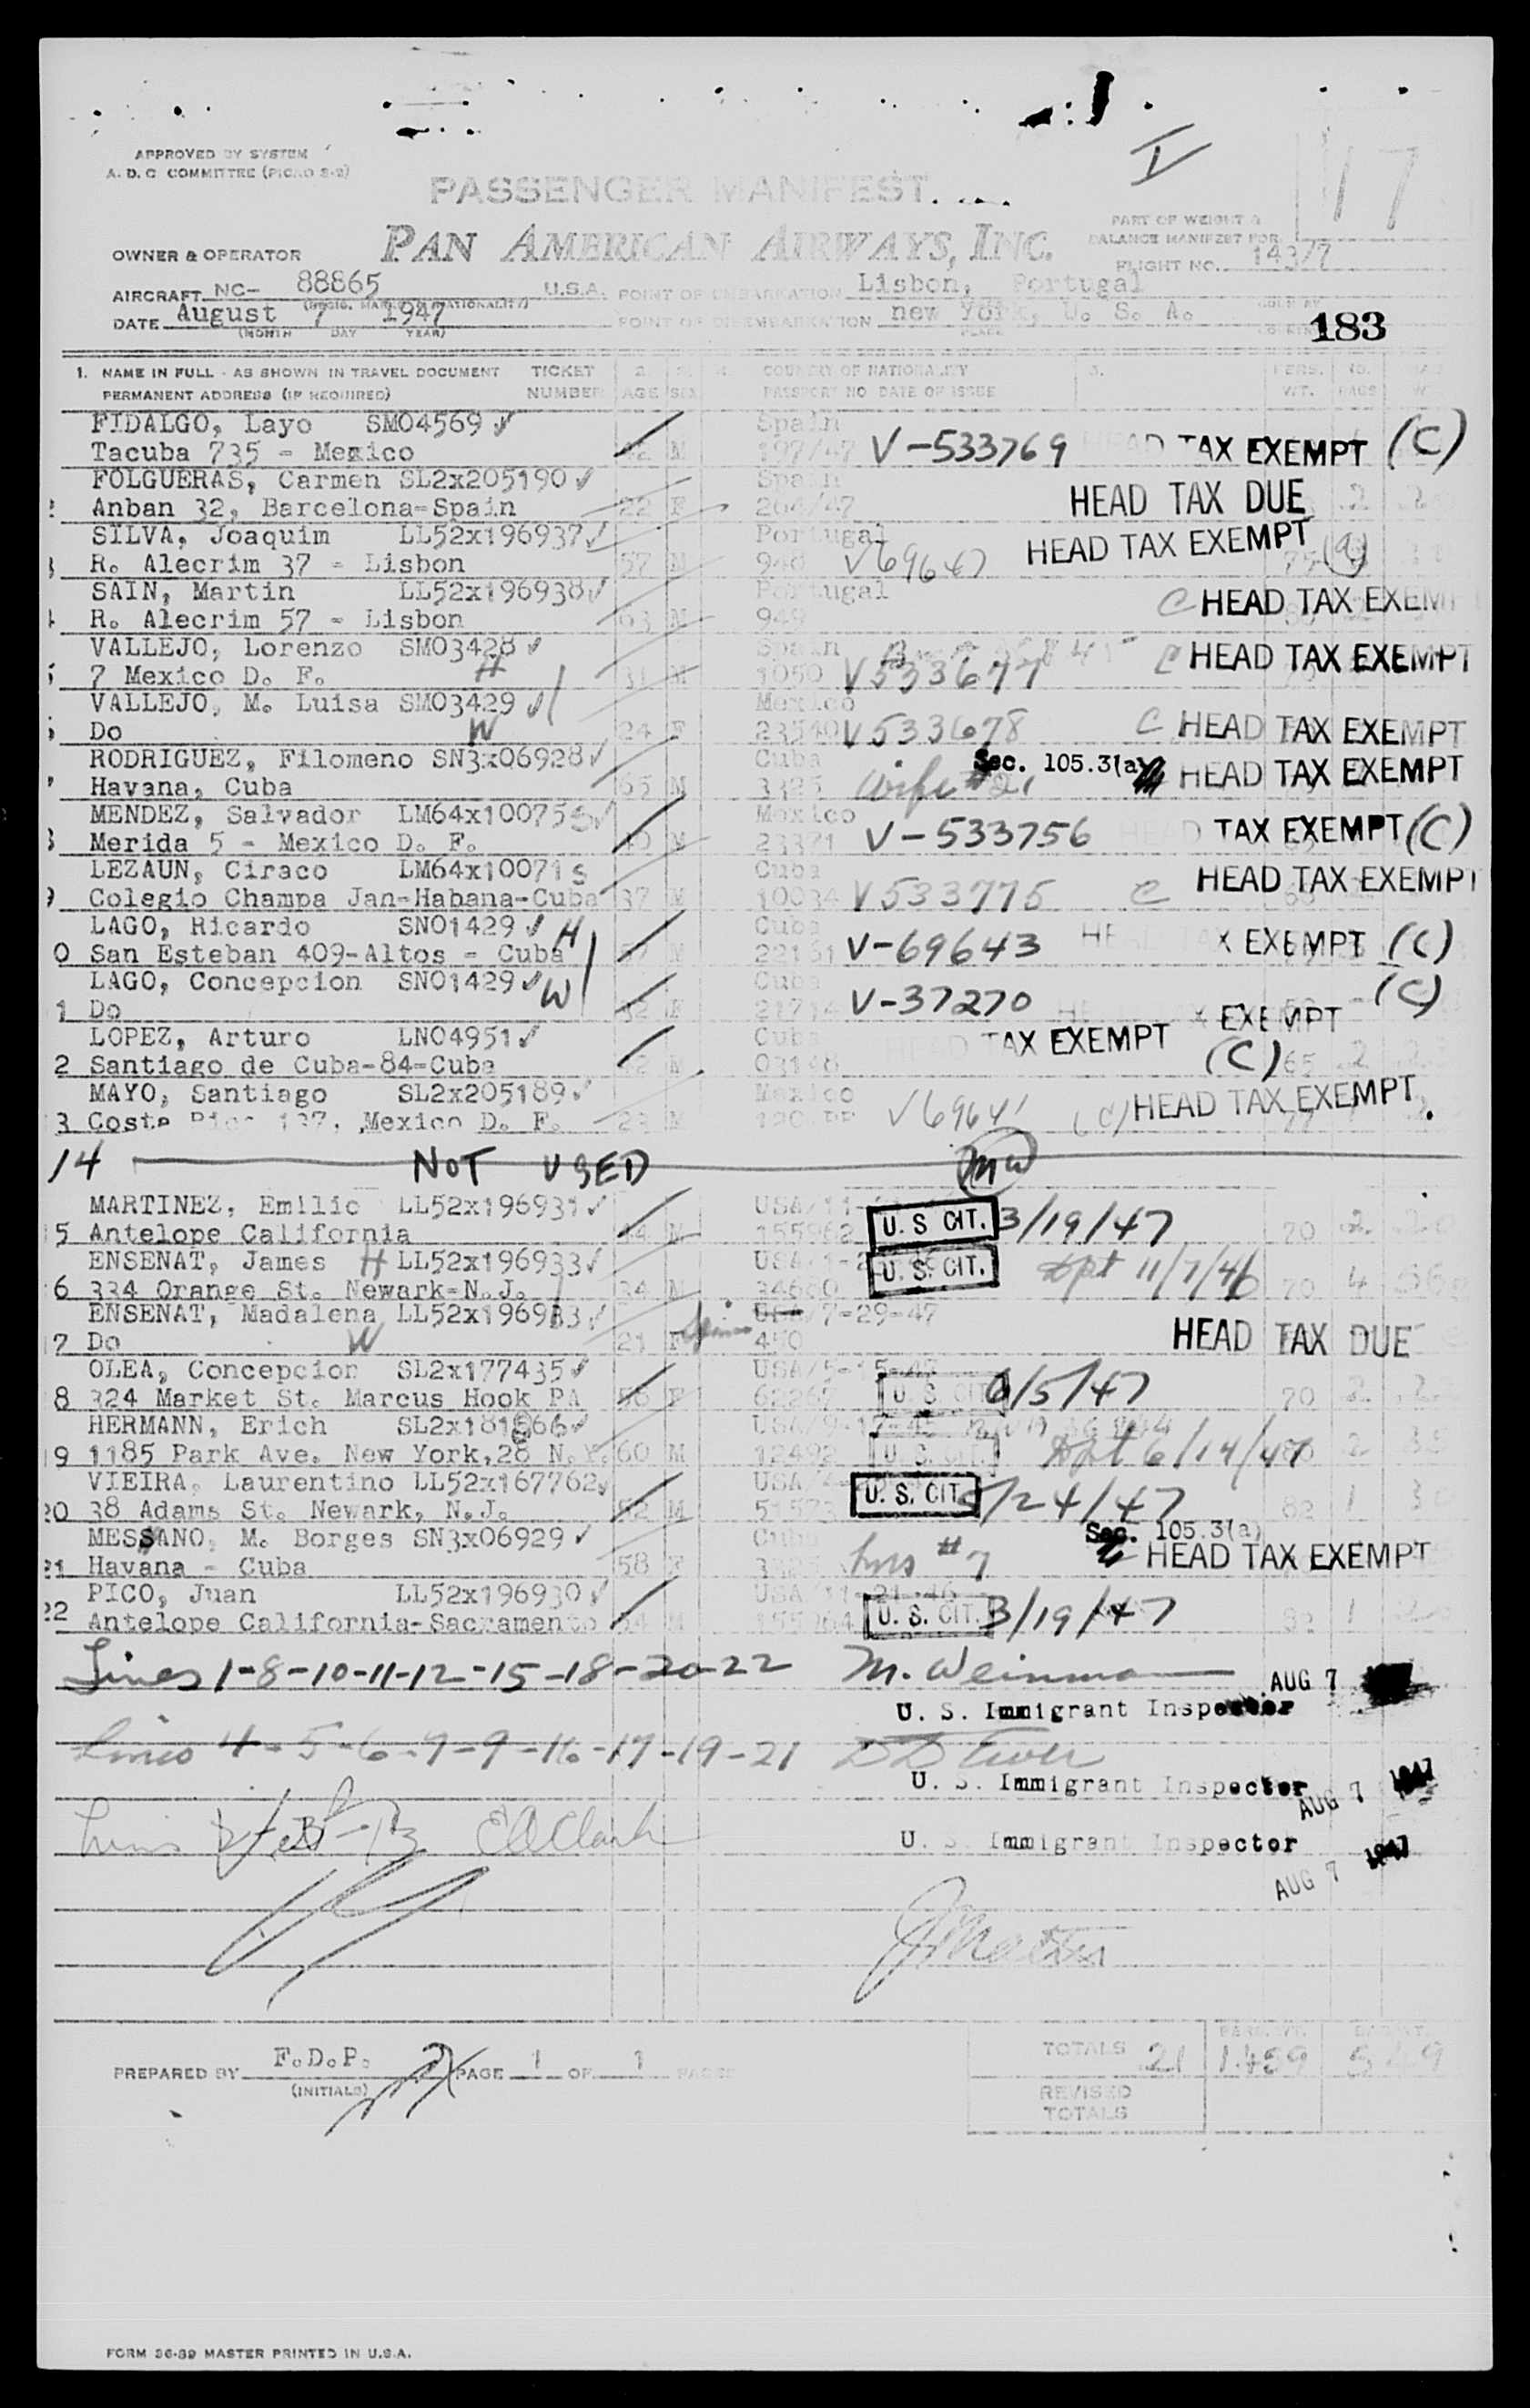 APPROVED BY SYSTEM
A. D. C COMMITTEE
I
17
PASSENGER MANIFEST
PART OF WEIGHT &
BALANCE MANIFEST FOR
OWNER & OPERATOR PAN AMERICAN AIRWAYS, INC.
FLIGHT NO. 143/7
AIRCRAFT NC- 88865 U.S.A. POINT OF EMBARKATION Lisbon, Portugal
DATE August 7 1947 POINT OF DISEMBARKATION new York, U. S. A.
(MONTH DAY YEAR) PLACE
183
1. NAME IN FULL - AS SHOWN IN TRAVEL DOCUMENT TICKET 2. 3. 4. COUNTRY OF NATIONALITY 5. PERS. NO.
PERMANENT ADDRESS (IF REQUIRED) NUMBER AGE SEX PASSPORT NO DATE OF ISSUE WT. PASS
FIDALGO, Layo SMO4569 Spain
Tacuba 735 - Mexico M 197/47 V-533769 HEAD TAX EXEMPT (C)
FOLGUERAS, Carmen SL2x205190 Spain
Anban 32, Barcelona-Spain 22 F 264/47 HEAD TAX DUE 2
SILVA, Joaquim LL52x196937 Portugal
R. Alecrim 37 - Lisbon 57 M 948 V69647 HEAD TAX EXEMPT (a)
SAIN, Martin LL52x196938 Portugal
R. Alecrim 57 - Lisbon 63 M 949 C HEAD TAX EXEMPT
VALLEJO, Lorenzo SMO3428 Spain
7 Mexico D. F. H 31 M 1050 V533677 C HEAD TAX EXEMPT
VALLEJO, M. Luisa SMO3429 Mexico
Do W 24 F 23540 V533678 C HEAD TAX EXEMPT
RODRIGUEZ, Filomeno SN3x06928 Cuba Sec. 105.3(a)
Havana, Cuba 65 M 3325 wife #21 HEAD TAX EXEMPT
MENDEZ, Salvador LM64x10075 S Mexico
Merida 5 - Mexico D. F. 40 M 23371 V-533756 HEAD TAX EXEMPT (C)
LEZAUN, Ciraco LM64x10071 S Cuba
Colegio Champa Jan-Habana-Cuba 37 M 10034 V533775 C HEAD TAX EXEMPT
LAGO, Ricardo SNO1429 H Cuba
0 San Esteban 409-Altos - Cuba M 22161 V-69643 HEAD TAX EXEMPT (C)
LAGO, Concepcion SNO1429 W Cuba
1 Do 52 F 21714 V-37270 EXEMPT (C)
LOPEZ, Arturo LNO4951 Cuba HEAD TAX EXEMPT
2 Santiago de Cuba-84-Cuba M (C) 65 2
MAYO, Santiago SL2x205189 Mexico
3 Costa Rica 137, Mexico D. F. 23 M V69641 (C) HEAD TAX EXEMPT
14 NOT USED MW
MARTINEZ, Emilio LL52x196931 USA/11-
15 Antelope California 44 M 155962 U. S CIT. 3/19/47 70 2
ENSENAT, James H LL52x196933 USA/
6 334 Orange St. Newark-N.J. 34 M 34660 U. S. CIT. Dpt 11/7/46 70 4
ENSENAT, Madalena LL52x196933 USA/7-29-47
17 Do W 21 F Spain 450 HEAD TAX DUE
OLEA, Concepcion SL2x177435 USA/5-15-47
8 324 Market St. Marcus Hook PA 56 F 62267 U. S. CIT 6/5/47 70 2
HERMANN, Erich SL2x181866 USA/
19 1185 Park Ave. New York,28 N.Y. 60 M 12492 U. S. CIT. Dpt 6/14/47 2
VIEIRA, Laurentino LL52x167762 USA
20 38 Adams St. Newark, N.J. 52 M U. S. CIT. 5/24/47 82 1
MESSANO, M. Borges SN3x06929 Cuba Sec. 105.3(a)
21 Havana - Cuba 58 F 3325 hus #7 HEAD TAX EXEMPT
PICO, Juan LL52x196930 USA/11-21-46
22 Antelope California-Sacramento 54 M 155964 U. S. CIT. 3/19/47 82 1
Lines 1-8-10-11-12-15-18-20-22 M. Weinman AUG 7
U. S. Immigrant Inspector
Lines 4-5-6-7-9-16-17-19-21
U. S. Immigrant Inspector AUG 7 1947
Lines 2 3-13 E A Clark U. S. Immigrant Inspector
AUG 7 1947
PREPARED BY F.D.P. PAGE 1 OF 1 PAGES
(INITIALS)
TOTALS 21 1489 549
REVISED
TOTALS
FORM 36-39 MASTER PRINTED IN U.S.A.